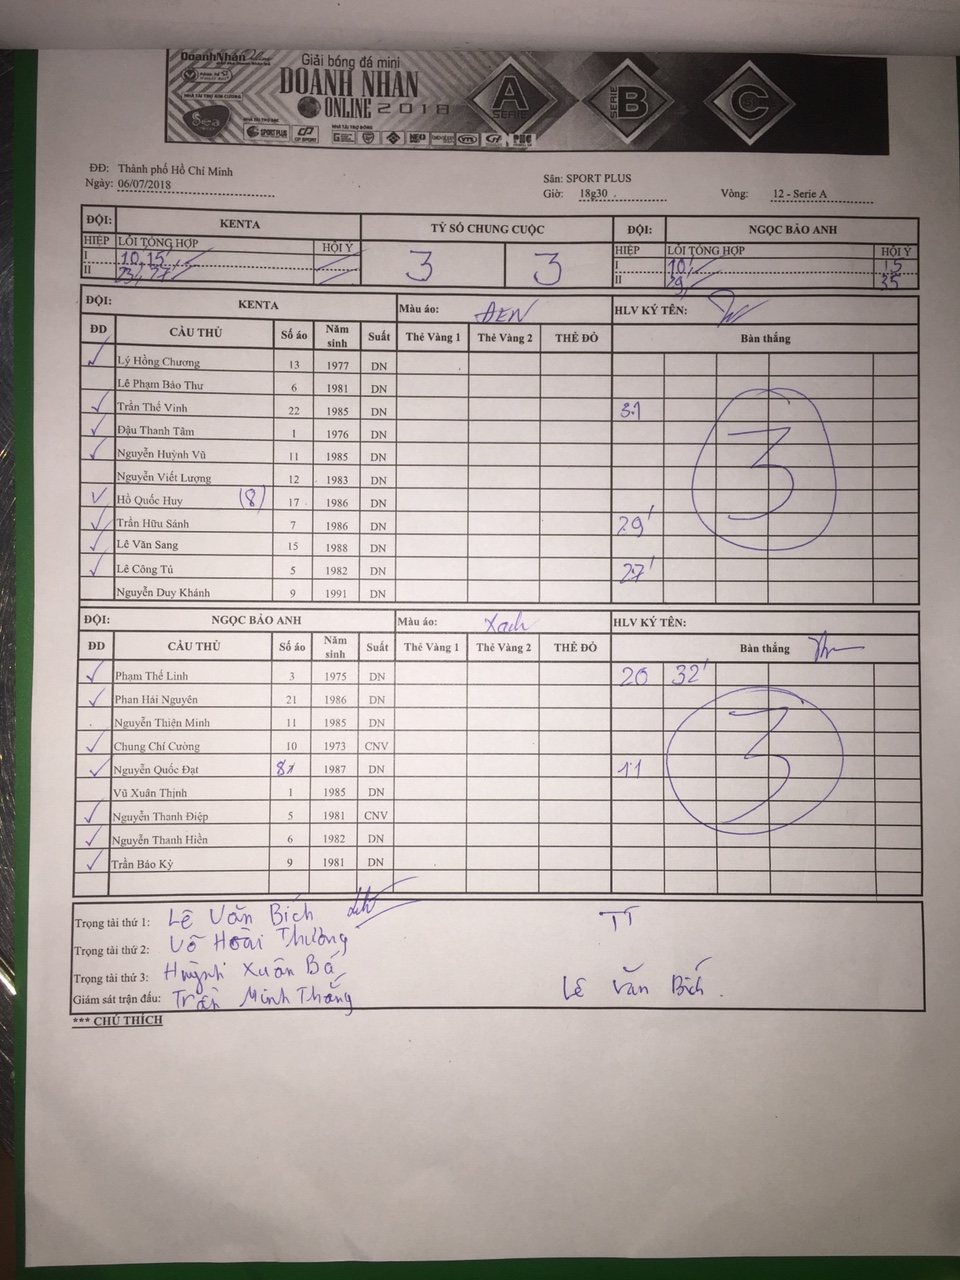 DoanhNhan
Giải bóng đá mini
DOANH NHAN
ONLINE 2018
NHÀ TÀI TRỢ KIM CƯƠNG
Sea
SPORT PLUS
A SERIE
SERIE B
C
ĐĐ: Thành phố Hồ Chí Minh Sân: SPORT PLUS
Ngày: 06/07/2018 Giờ: 18g30 Vòng: 12 - Serie A
ĐỘI: KENTA TỶ SỐ CHUNG CUỘC ĐỘI: NGỌC BẢO ANH
HIỆP LỖI TỔNG HỢP HỘI Ý 3 3 HIỆP LỖI TỔNG HỢP HỘI Ý
I 10, 15' I 10' 15
II 23', 27' II 29' 35
ĐỘI: KENTA Màu áo: ĐEN HLV KÝ TÊN:
ĐD CẦU THỦ Số áo Năm sinh Suất Thẻ Vàng 1 Thẻ Vàng 2 THẺ ĐỎ Bàn thắng
Lý Hồng Chương 13 1977 DN
Lê Phạm Bảo Thư 6 1981 DN
Trần Thế Vinh 22 1985 DN 31
Đậu Thanh Tâm 1 1976 DN
Nguyễn Huỳnh Vũ 11 1985 DN
Nguyễn Viết Lượng 12 1983 DN 3
Hồ Quốc Huy (8) 17 1986 DN
Trần Hữu Sánh 7 1986 DN 29'
Lê Văn Sang 15 1988 DN
Lê Công Tú 5 1982 DN 27'
Nguyễn Duy Khánh 9 1991 DN
ĐỘI: NGỌC BẢO ANH Màu áo: Xanh HLV KÝ TÊN:
ĐD CẦU THỦ Số áo Năm sinh Suất Thẻ Vàng 1 Thẻ Vàng 2 THẺ ĐỎ Bàn thắng
Phạm Thế Linh 3 1975 DN 20 32'
Phan Hải Nguyên 21 1986 DN
Nguyễn Thiện Minh 11 1985 DN
Chung Chí Cường 10 1973 CNV 3
Nguyễn Quốc Đạt 1987 DN 11
Vũ Xuân Thịnh 1 1985 DN
Nguyễn Thanh Điệp 5 1981 CNV
Nguyễn Thanh Hiền 6 1982 DN
Trần Bảo Kỳ 9 1981 DN
Trọng tài thứ 1: Lê Văn Bích TT
Trọng tài thứ 2: Võ Hoài Thường
Trọng tài thứ 3: Huỳnh Xuân Bá
Giám sát trận đấu: Trần Minh Thắng Lê Văn Bích.
*** CHÚ THÍCH